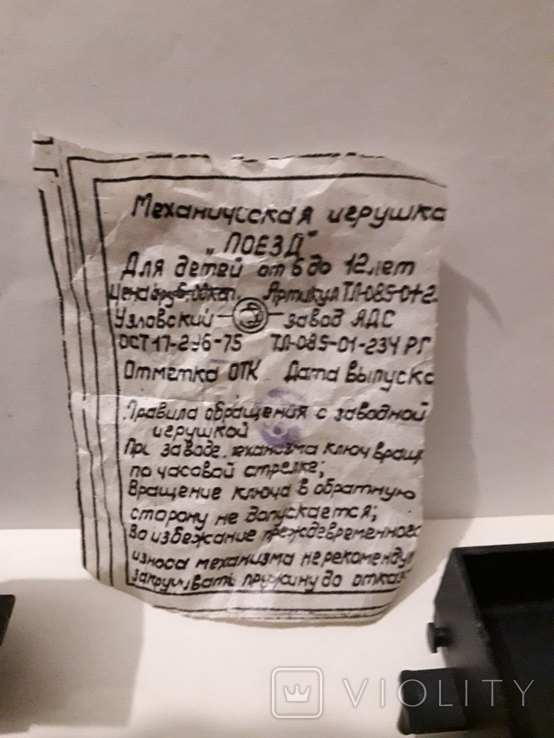 Механическая игрушка
„ПОЕЗД"
Для детей от 6 до 12 лет
Цена Артикул ТЛ-085-01-2
Узловский завод
ОСТ 17-296-75 ТЛ-085-01-234 РГ
Отметка ОТК Дата выпуска
Правила обращения с заводной
игрушкой
При заводе механизма ключ вращ
по часовой стрелке;
Вращение ключа в обратную
сторону не допускается;
Во избежание преждевременного
износа механизма не рекоменду
закручивать пружину до отказ
VIOLITY